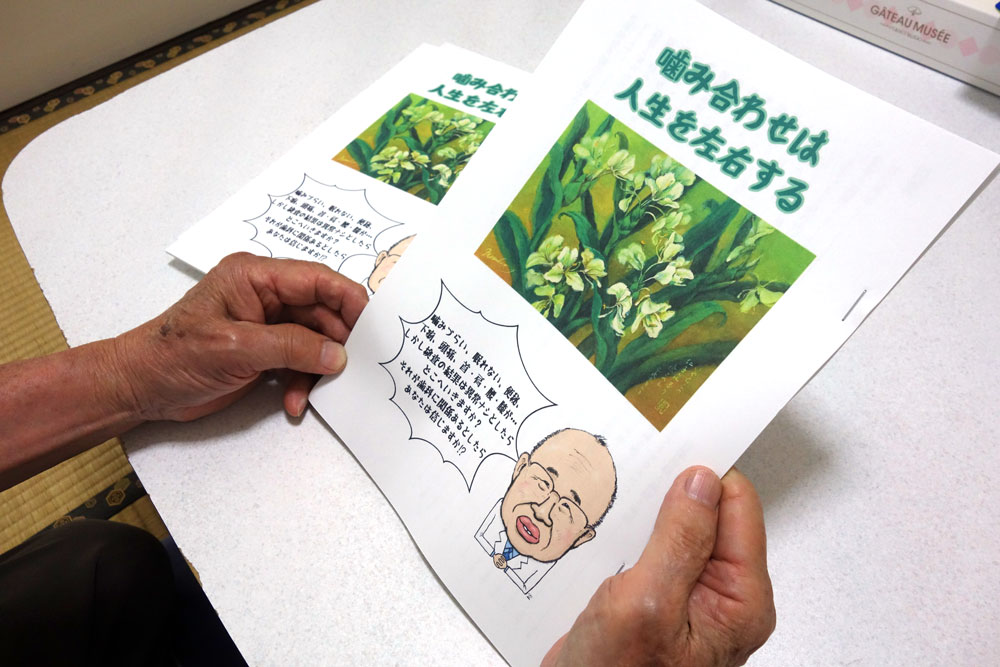 GÂTEAU MUSÉE
噛み合わせは
人生を左右する
噛みづらい、眠れない、便秘、
下痢、頭痛、首・肩・腰・膝が…
しかし検査の結果は異常ナシとしたら
どこへいきますか?
それが歯科に関係あるとしたら
あなたは信じますか!?
噛み合わ
人生を左右
噛みづらい、眠れない、便秘、
下痢、頭痛、首・肩・腰・膝が…
しかし検査の結果は異常ナシとしたら
どこへいきますか?
それが歯科に関係あるとしたら
あなたは信じますか!?